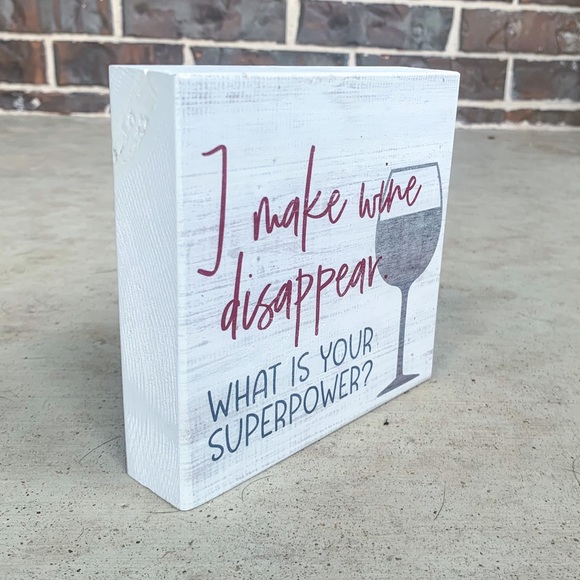 I make wine
disappear.
WHAT IS YOUR
SUPERPOWER?